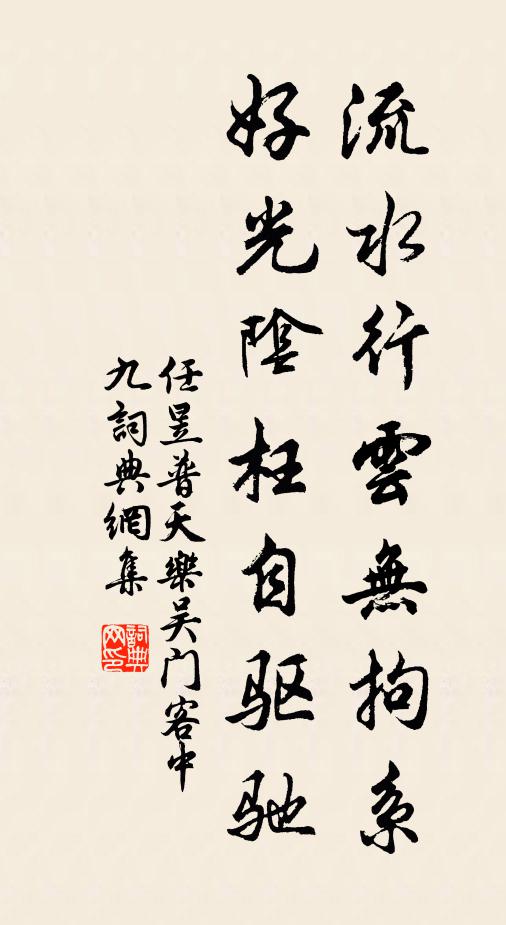 流水行雲無拘系
好光陰枉自驱驰
任昱普天樂吴门客中
九詞典網集
詞典网印